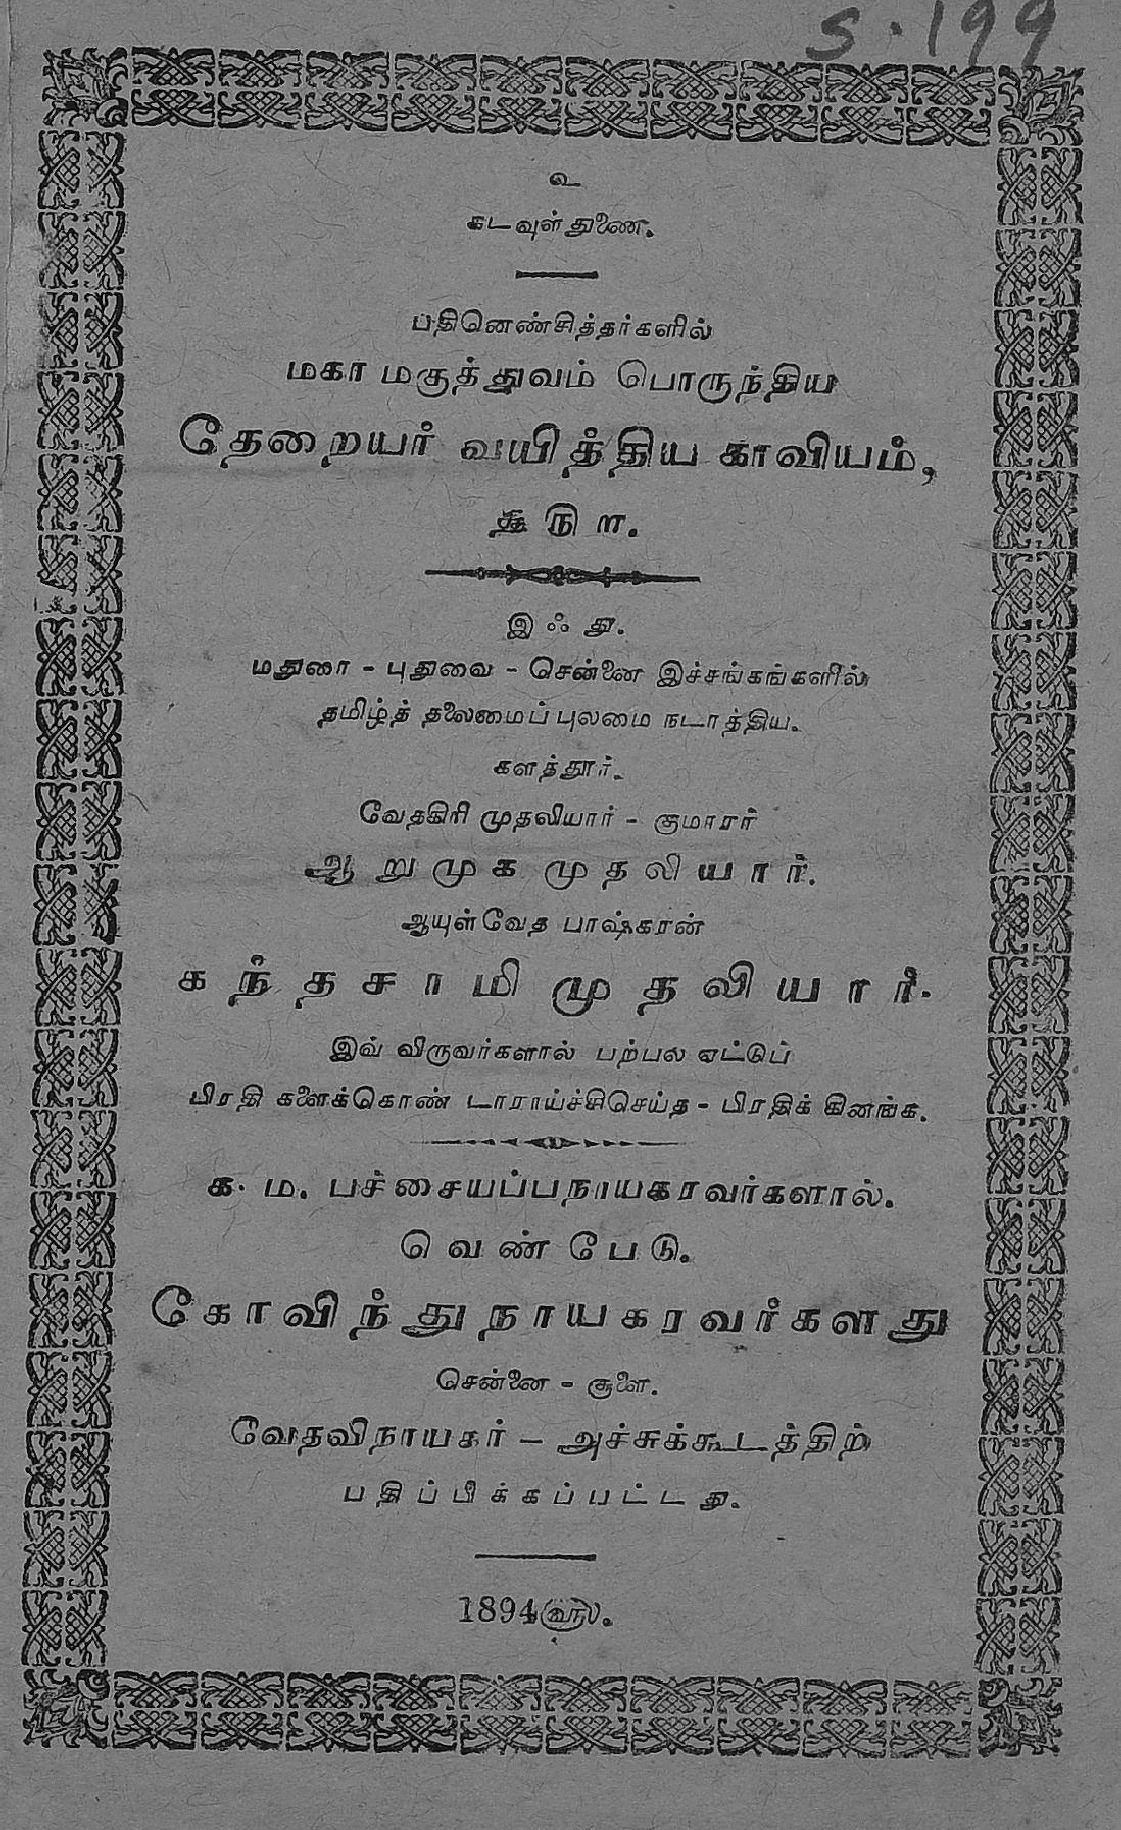 S. 199
உ
கடவுள் துணை.
பதினெண்சித்தர்களில்
மகா மகுத்துவம் பொருந்திய
தேறையர் வயித்திய காவியம்,
௲ ரு ௱.
இஃது.
மதுரை - புதுவை - சென்னை இச்சங்கங்களில்
தமிழ்த் தலைமைப் புலமை நடாத்திய.
களத்தூர்.
வேதகிரி முதலியார் - குமாரர்
ஆறுமுக முதலியார்.
ஆயுள்வேத பாஷ்கரன்
கந்தசாமி முதலியார்.
இவ் விருவர்களால் பற்பல ஏட்டுப்
பிரதி களைக்கொண் டாராய்ச்சிசெய்த - பிரதிக் கிணங்க.
க. ம. பச்சையப்பநாயகரவர்களால்.
வெண்பேடு.
கோவிந்துநாயகரவர்களது
சென்னை - சூளை.
வேதவிநாயகர் - அச்சுக்கூடத்திற்
பதிப்பிக்கப்பட்டது.
1894௵.